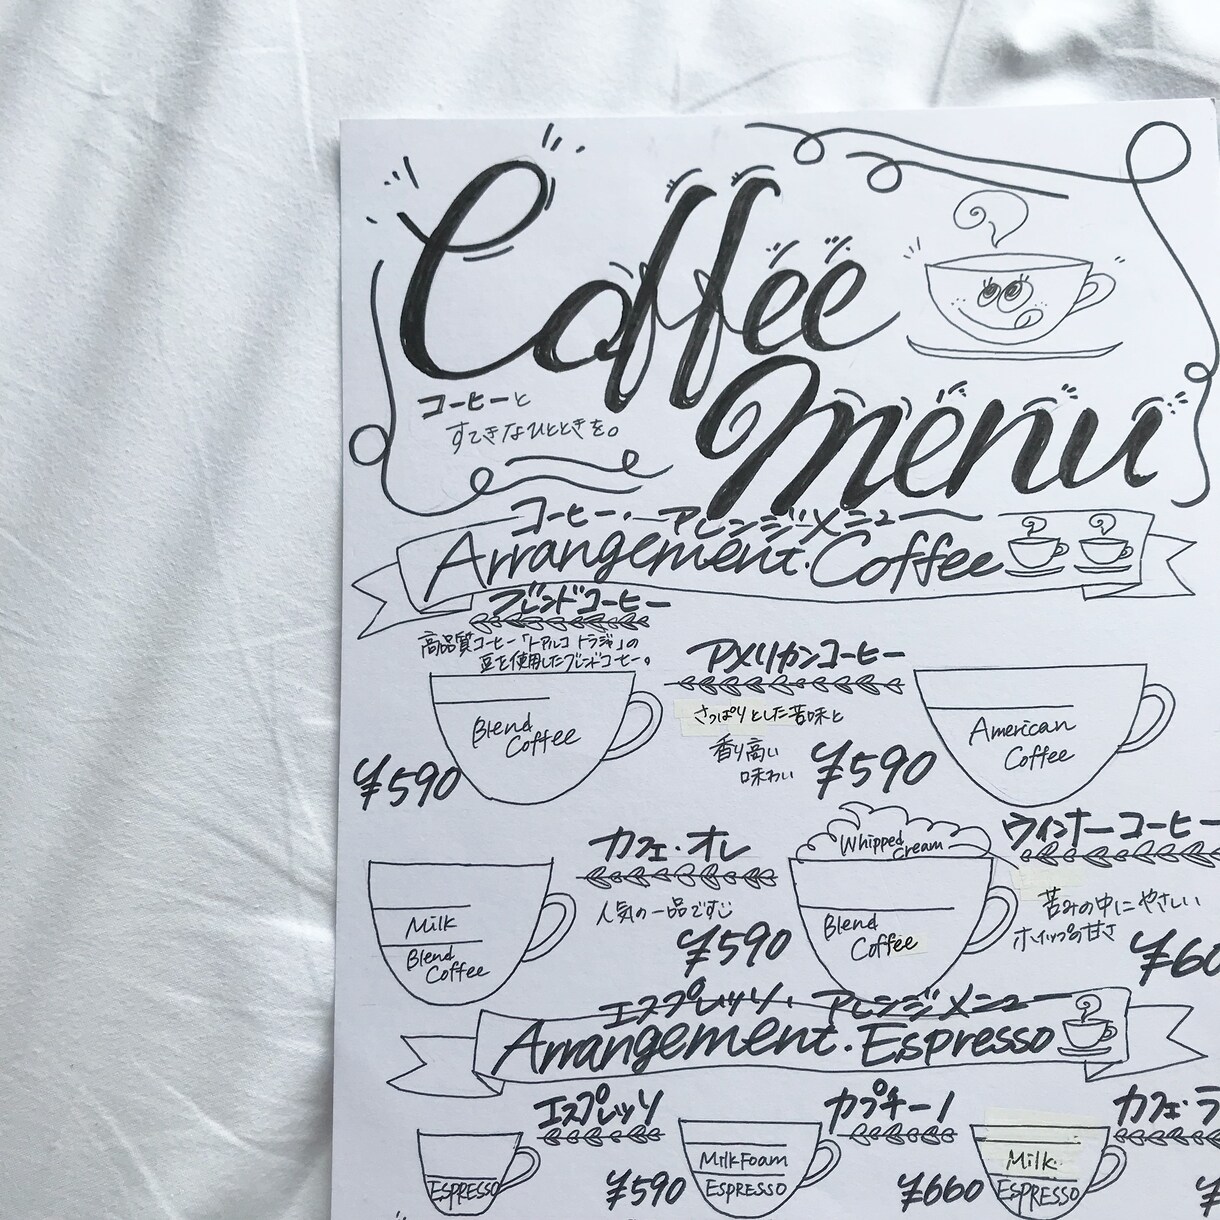 Coffee
menu
コーヒーと
すてきなひとときを。
コーヒー・アレンジメニュー
Arrangement.Coffee
ブレンドコーヒー
高品質コーヒー「トアルコ トラジャ」の
豆を使用したブレンドコーヒー。
Blend
Coffee
¥590
アメリカンコーヒー
さっぱりとした苦味と
香り高い
味わい
¥590
American
Coffee
カフェ・オレ
人気の一品です
¥590
Milk
Blend
Coffee
Whipped
cream
Blend
Coffee
ウインナーコーヒー
苦みの中にやさしい
ホイップの甘さ
¥60
エスプレッソ・アレンジメニュー
Arrangement.Espresso
エスプレッソ
ESPRESSO
¥590
カプチーノ
MilkFoam
ESPRESSO
¥660
カフェ・ラ
Milk
ESPRESSO
¥